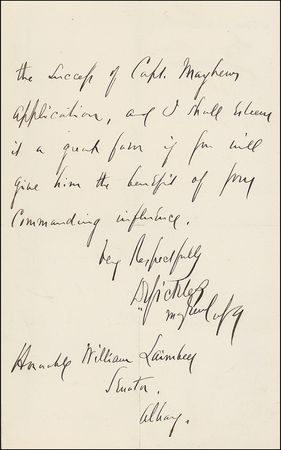 the success of Capt. Mayhews
application, and I shall esteem
it a great favor if you will
give him the benefit of your
Commanding influence.
Very Respectfully
DSickles
Honorable William Laimbeer
Senator.
Albany.